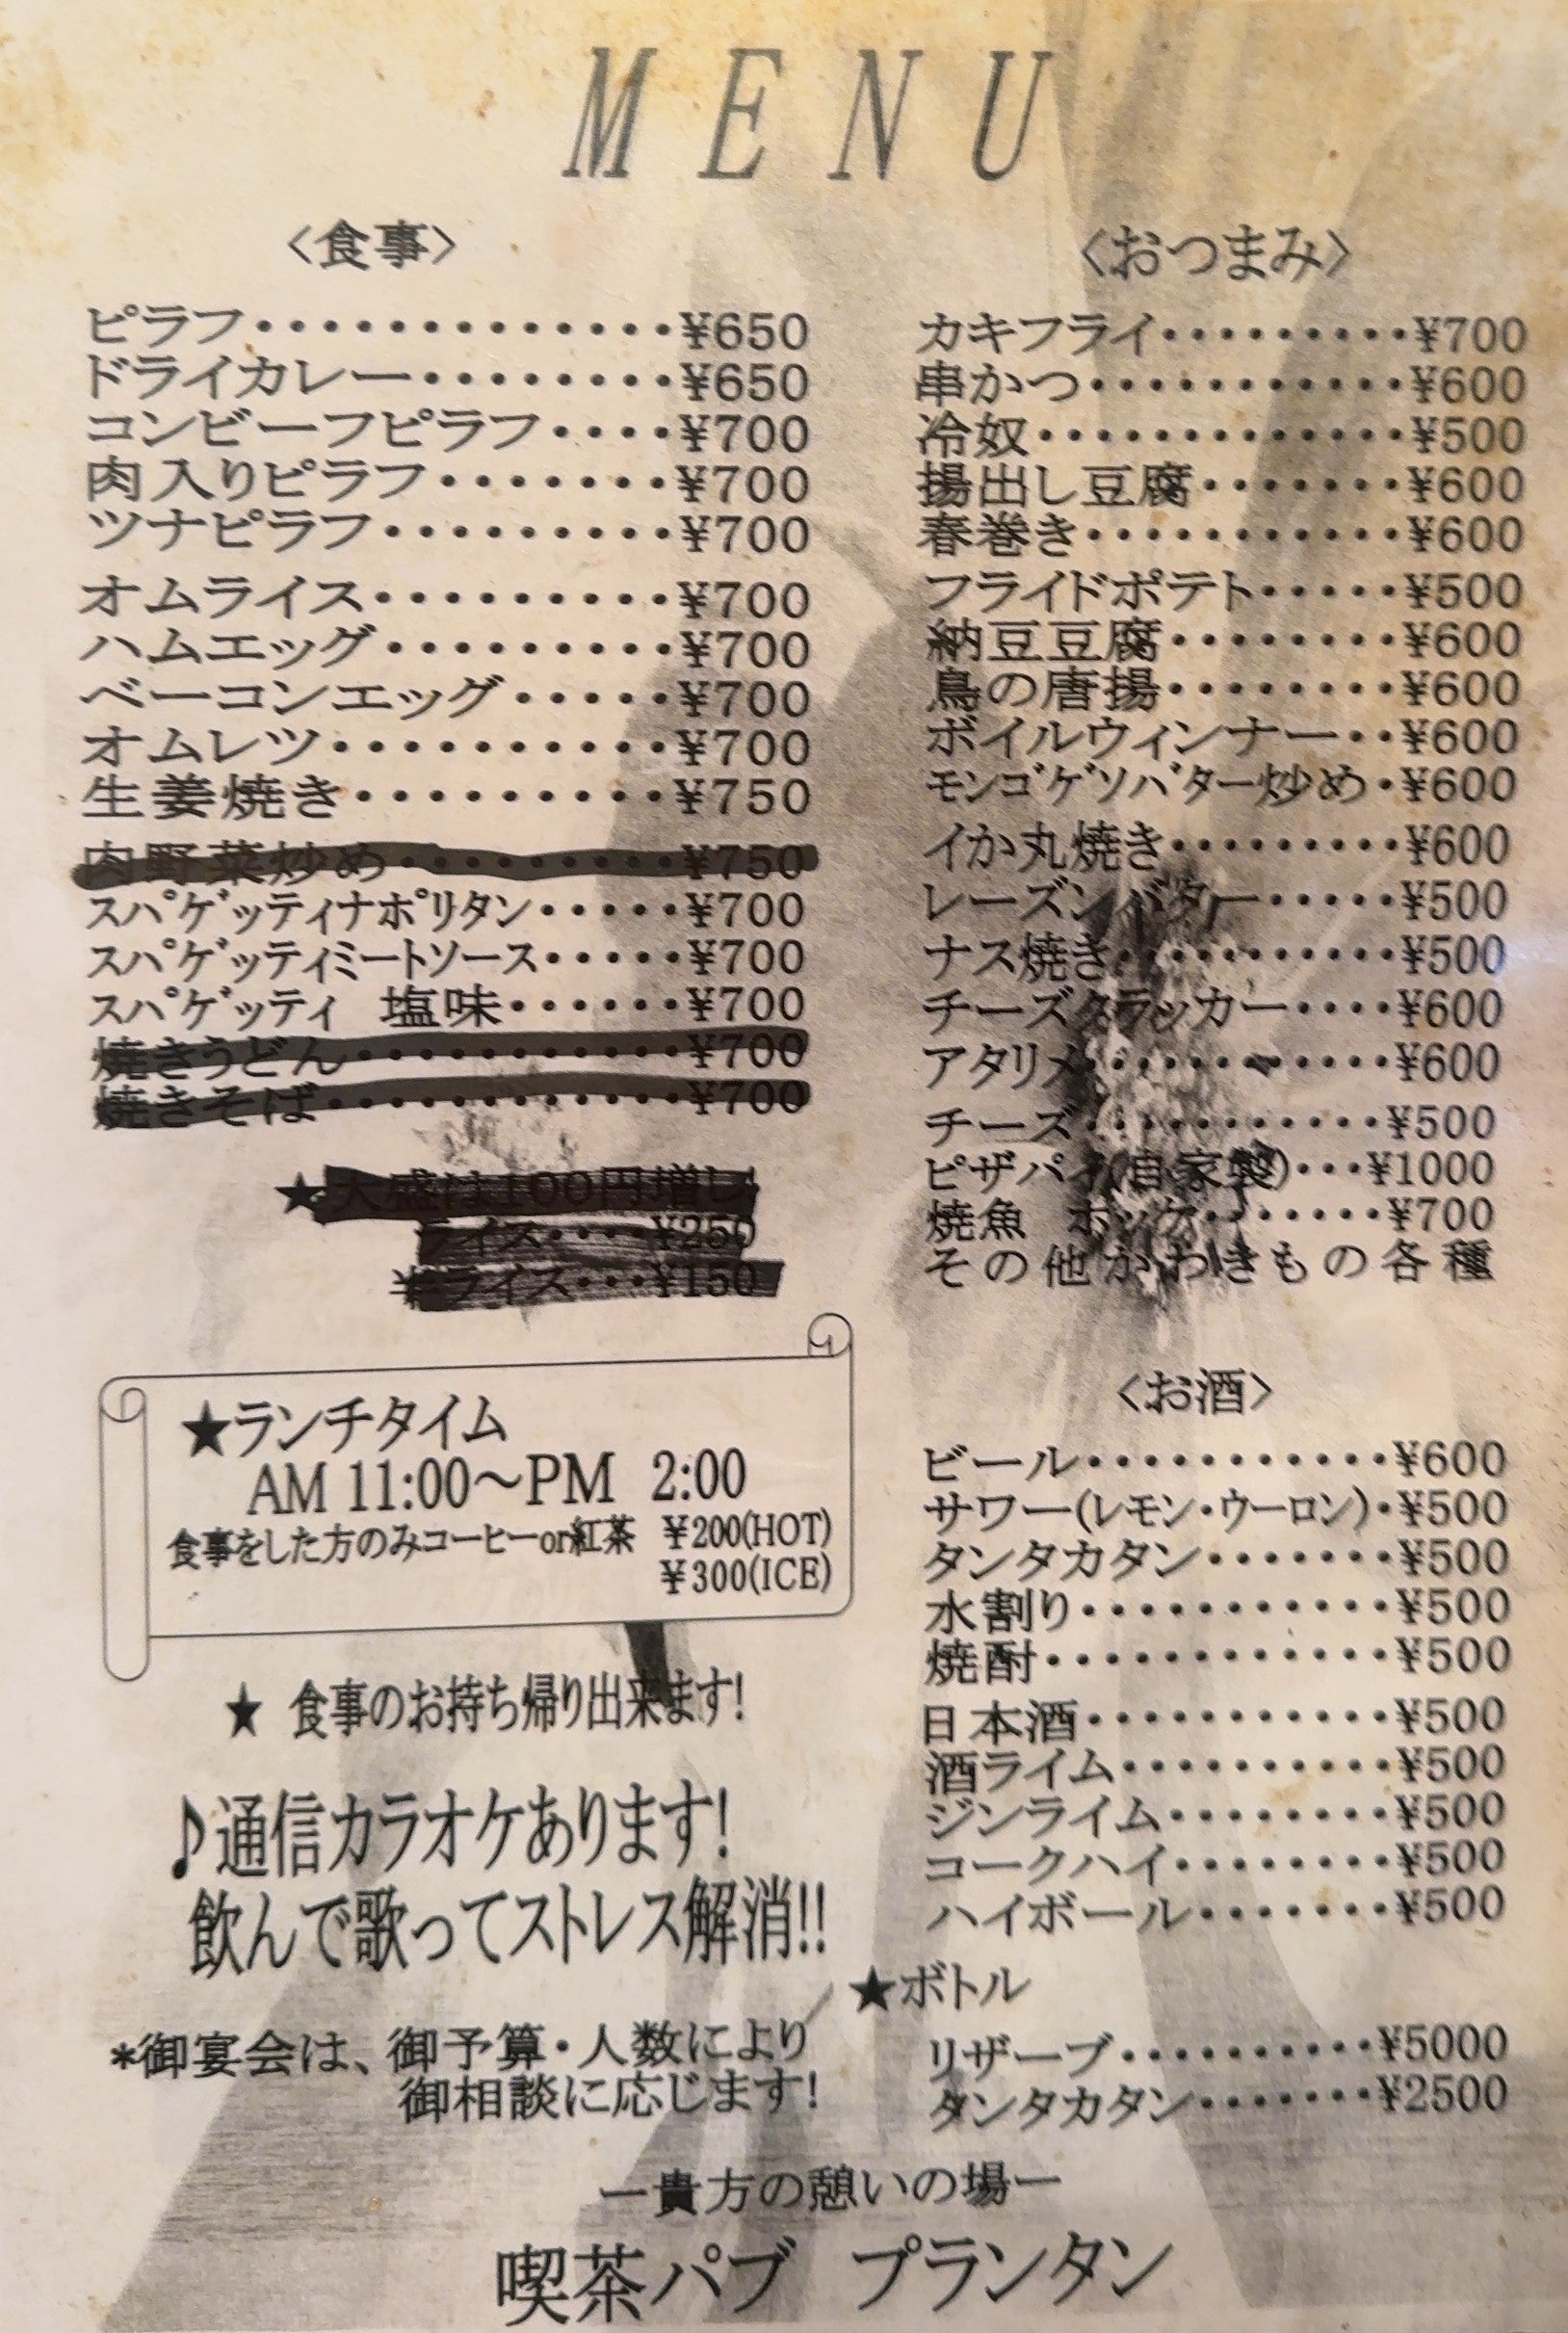 MENU
〈食事〉
ピラフ・・・・・・・・・・・・・・¥650
ドライカレー・・・・・・・・・¥650
コンビーフピラフ・・・・¥700
肉入りピラフ・・・・・・・・¥700
ツナピラフ・・・・・・・・・・¥700
オムライス・・・・・・・・・・¥700
ハムエッグ・・・・・・・・・・¥700
ベーコンエッグ・・・・・・¥700
オムレツ・・・・・・・・・・・・¥700
生姜焼き・・・・・・・・・・・¥750
肉野菜炒め・・・・・・・・・・¥750
スパゲッティナポリタン・・・・・¥700
スパゲッティミートソース・・・・・¥700
スパゲッティ 塩味・・・・・・¥700
焼きうどん・・・・・・・・・・・・¥700
焼きそば・・・・・・・・・・・・・¥700
★大盛は100円増し
ライス・・・・¥250
半ライス・・・¥150
★ランチタイム
AM 11:00〜PM 2:00
食事をした方のみコーヒーor紅茶 ¥200(HOT)
¥300(ICE)
★ 食事のお持ち帰り出来ます!
♪通信カラオケあります!
飲んで歌ってストレス解消!!
*御宴会は、御予算・人数により
御相談に応じます!
〈おつまみ〉
カキフライ・・・・・・・・・¥700
串かつ・・・・・・・・・・・・¥600
冷奴・・・・・・・・・・・・・・¥500
揚出し豆腐・・・・・・・・¥600
春巻き・・・・・・・・・・・・¥600
フライドポテト・・・・・¥500
納豆豆腐・・・・・・・・・¥600
鳥の唐揚・・・・・・・・・¥600
ボイルウィンナー・・¥600
モンゴゲソバター炒め・¥600
イか丸焼き・・・・・・・・・¥600
レーズンバター・・・・・¥500
ナス焼き・・・・・・・・・・・¥500
チーズクラッカー・・・・¥600
アタリメ・・・・・・・・・・・・¥600
チーズ・・・・・・・・・・・・¥500
ピザパイ(自家製)・・・¥1000
焼魚 ホッケ・・・・・・・¥700
その他かわきもの各種
〈お酒〉
ビール・・・・・・・・・・・・¥600
サワー(レモン・ウーロン)・¥500
タンタカタン・・・・・・・¥500
水割り・・・・・・・・・・・・¥500
焼酎・・・・・・・・・・・・・¥500
日本酒・・・・・・・・・・・・¥500
酒ライム・・・・・・・・・・¥500
ジンライム・・・・・・・・¥500
コークハイ・・・・・・・・¥500
ハイボール・・・・・・・¥500
★ボトル
リザーブ・・・・・・・・・・¥5000
タンタカタン・・・・・・・¥2500
ー貴方の憩いの場ー
喫茶パブ プランタン